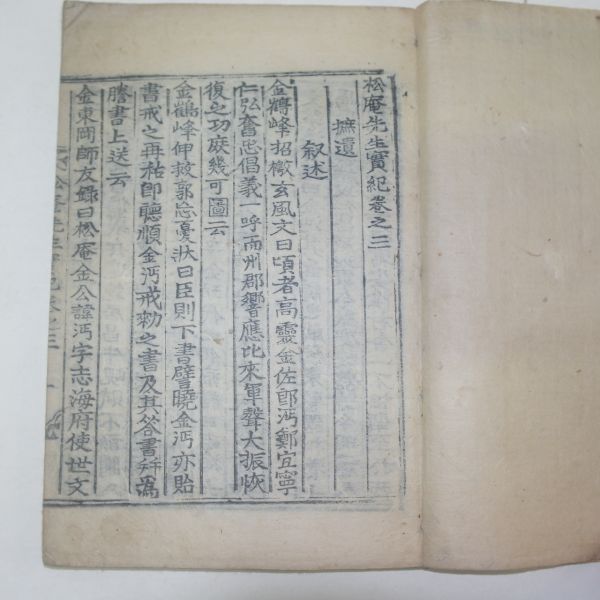 松庵先生實紀卷之三
摭遺
叙述
金鶴峰招檄玄風文曰頃者高靈金佐郎沔鄭宜寧
仁弘奮忠倡義一呼而州郡響應比來軍聲大振恢
復之功庶幾可圖云
金鶴峰伸救郭忘憂狀曰臣則下書譬曉金沔亦貽
書戒之再祐卽聽順金沔戒勑之書及其答書幷爲
謄書上送云
金東岡師友錄曰松庵金公諱沔字志海府使世文